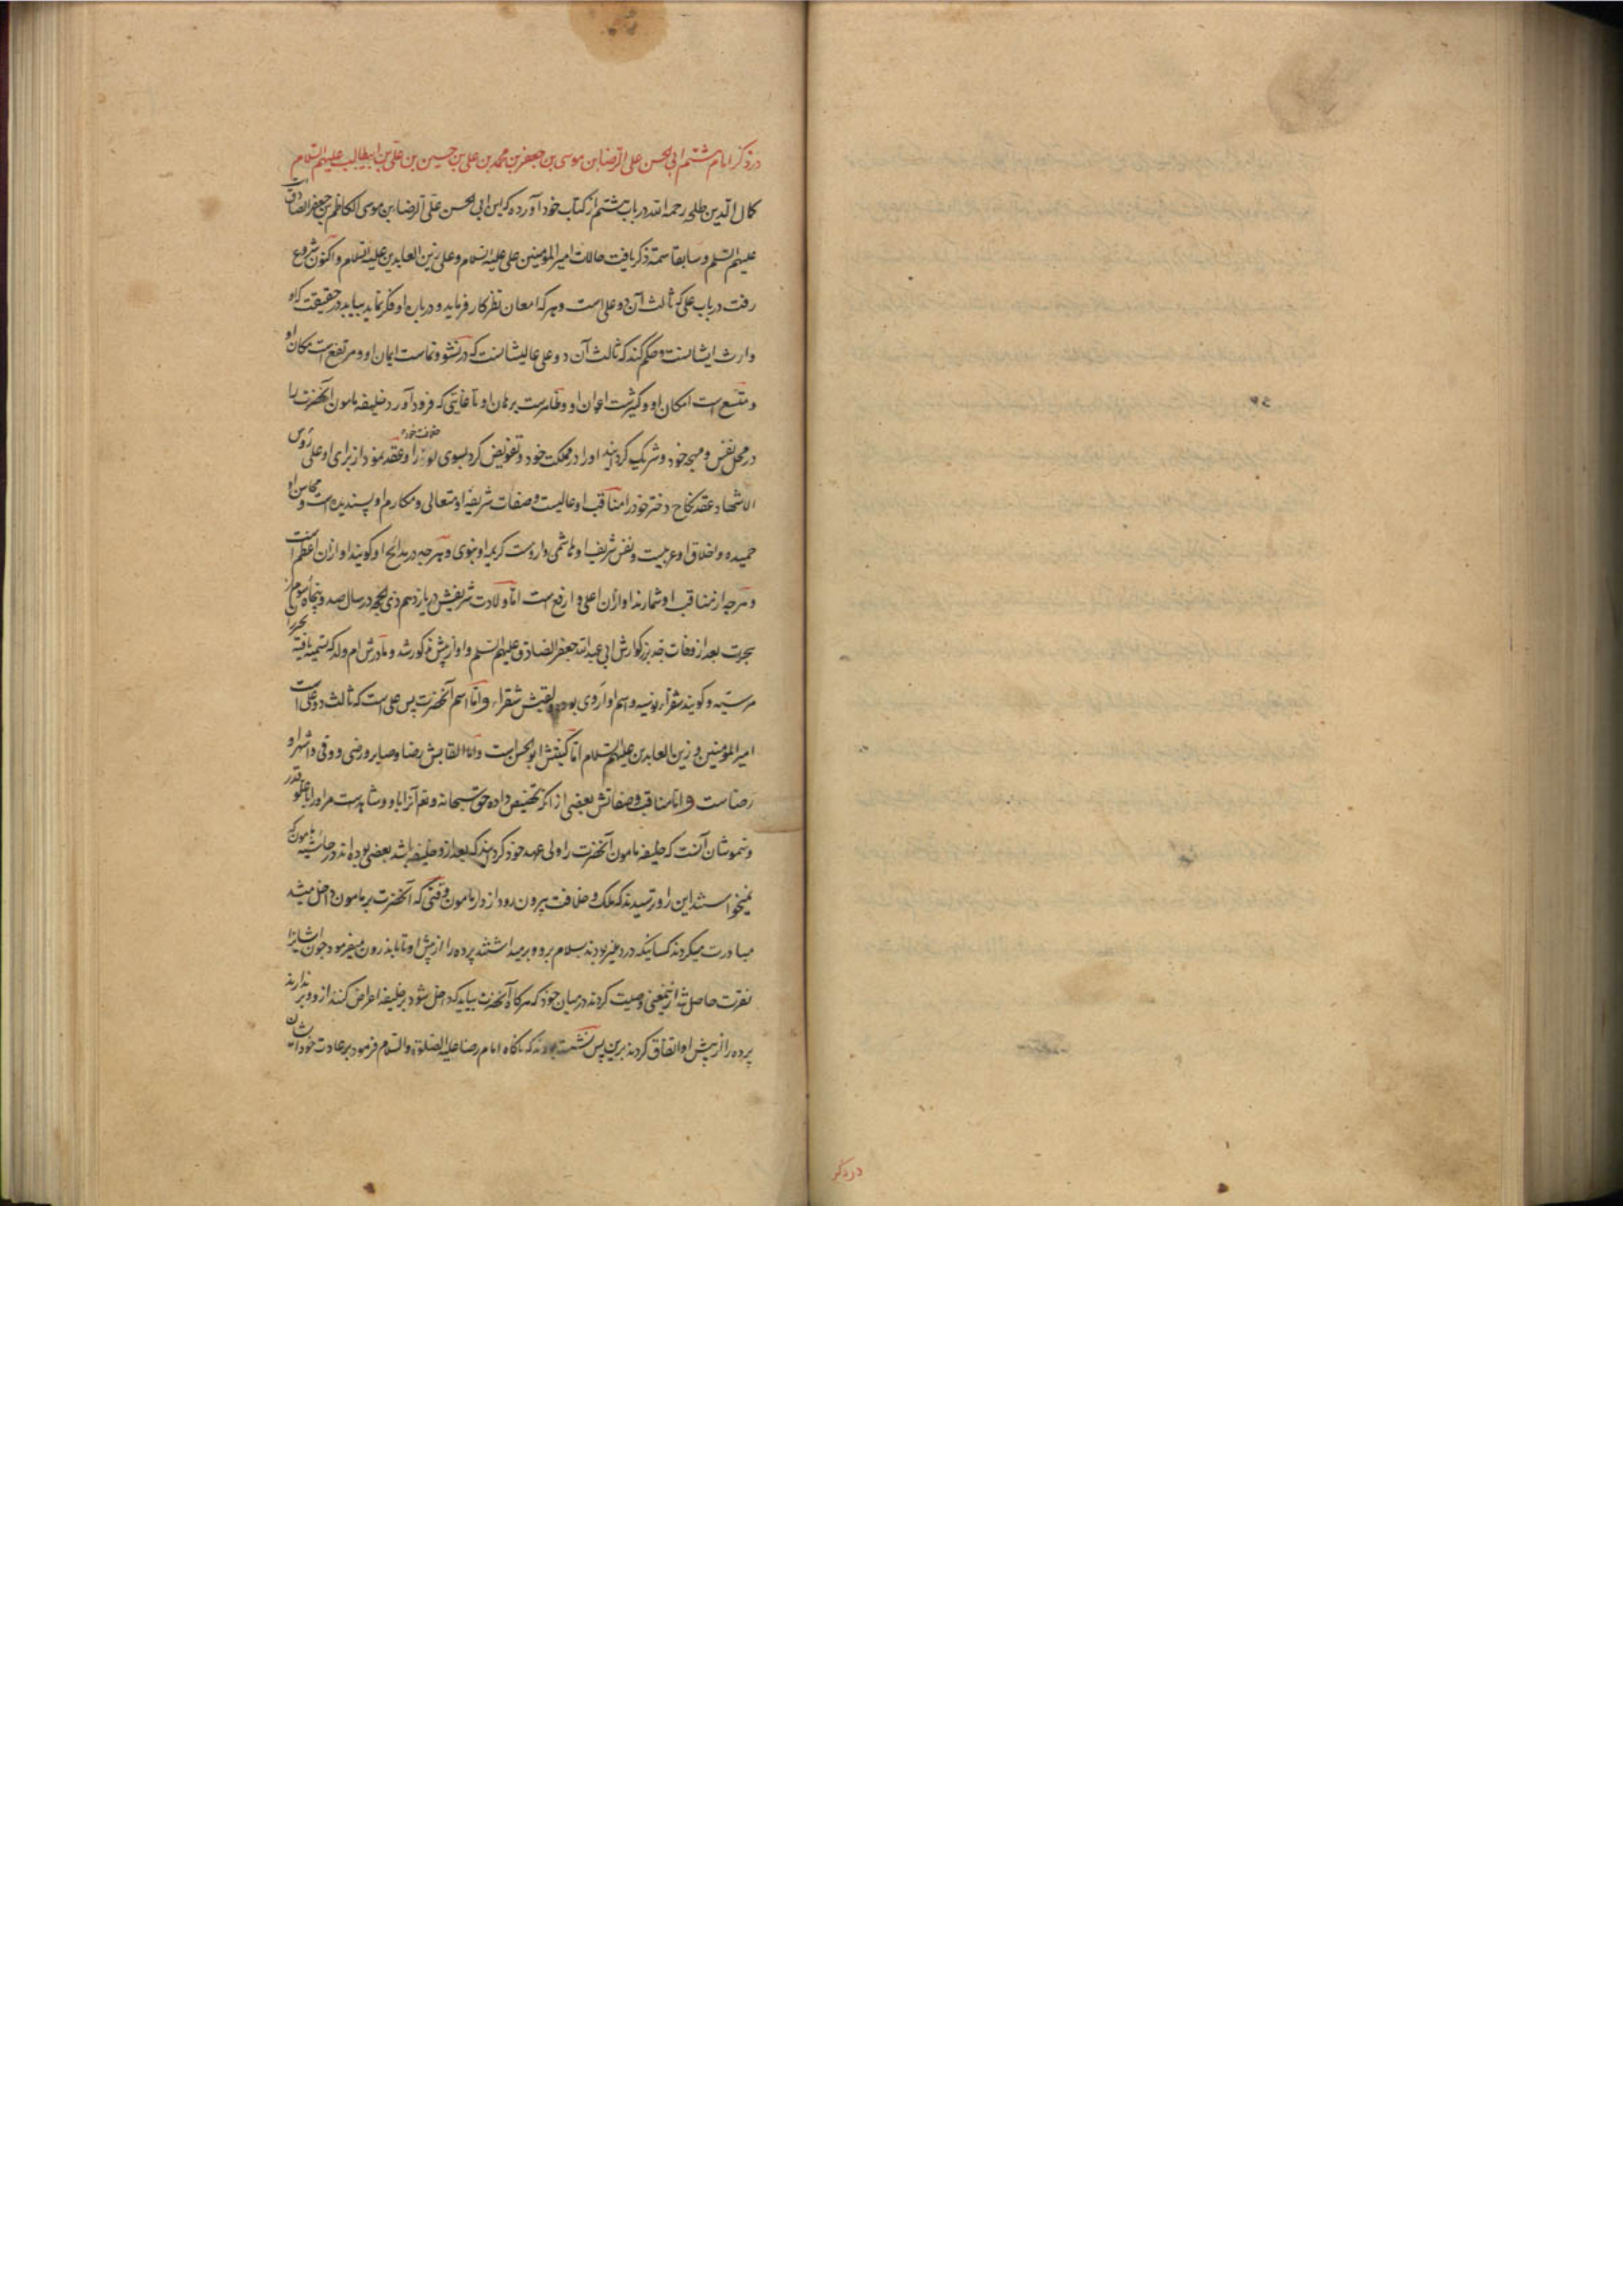 در ذکر امام هشتم ابی الحسن علی الرضا بن موسی بن جعفر بن محمد بن علی بن حسین بن علی بن ابیطالب علیهم السلام
کمال الدین طلحه رحمه الله در باب هشتم از کتاب خود آورده که این ابی الحسن علی الرضا بن موسی الکاظم بن جعفر الصادق است
علیهم السلم و سابقا سمة ذکر یافت حالات امیر المؤمنین علی علیه السلام و علی زین العابدین علیه السلام و اکنون شروع
رفت در باب علی که ثالث آن دو علی است و هر که امعان نظر کار فرماید و درباره او فکر نماید بیابد در حقیقت که او
وارث ایشانست و حکم کند که ثالث آن دو علی عالیشانست که در نشو و نماست ایمان او و مرتفع است مکان او
و متسع است امکان او و کثیرست اعوان او و ظاهرست برهان او تا غایتی که فرود آورد خلیفه مامون آنحضرت را
در محل نفس و مهجه خود و شریک گردانید او را در مملکت خود و تفویض کرد بسوی او خلافت خود را و عقد نمود از برای او علی رؤس
الاشهاد عقد نکاح دختر خود را مناقب او عالیست و صفات شریفه او متعالی و مکارم او پسندیده است و محاسن او
حمیده و اخلاق او عربیست و نفس شریف او هاشمی و ارومت کریمه او نبوی و هر چه در مدایح او گویند او از آن اعظم است
و هر چه از مناقب او شمارند او از آن اعلی و ارفع است اما ولادت شریفش در یازدهم ذی الحجه در سال صد و پنجاه و سوم از
هجرت بعد از وفات جد بزرگوارش ابی عبد الله جعفر الصادق علیهم السلم و او از پیش مذکور شد و مادرش ام ولد که تسمیه یافته
مرسیه و گویند شقراء نوبیه و اسم او اروی بود و لقبش شقراء و اما اسم آنحضرت پس علی است که ثالث دو علی است
امیر المؤمنین و زین العابدین علیهم السلام اما کنیتش ابو الحسن است و اما القابش رضا و صابر و رضی و وفی و اشهر او
رضاست و اما مناقب و صفاتش بعضی از آنکه تخصیص داده حق سبحانه و تعالی باو و شاهدست مر او را بعلو قدر
و سمو شان آنست که خلیفه مامون آنحضرت را ولی عهد خود گردانید که بعد از و خلیفه باشد بعضی بوده‌اند در حاشیه مامون که
نمیخواستند این را و ترسیدند که ملک و خلافت بیرون رود از دار مامون وقتی که آنحضرت بر مامون داخل میشد
مبادرت میکردند کسانیکه در دهلیز بودند بسلام برو و برمیداشتند پرده را از پیش او تا باندرون میفرمود چون ایشانرا
نفرت حاصل شد ازینمعنی وصیت کردند در میان خود که هر گاه آنحضرت بیاید که داخل شود بر خلیفه اعراض کنند از و و بر ندارند
پرده را از پیش او اتفاق کردند برین پس نشسته بودند که ناگاه امام رضا علیه الصلوة و السلام فرمود بر عادت خود ایشان
در ذکر